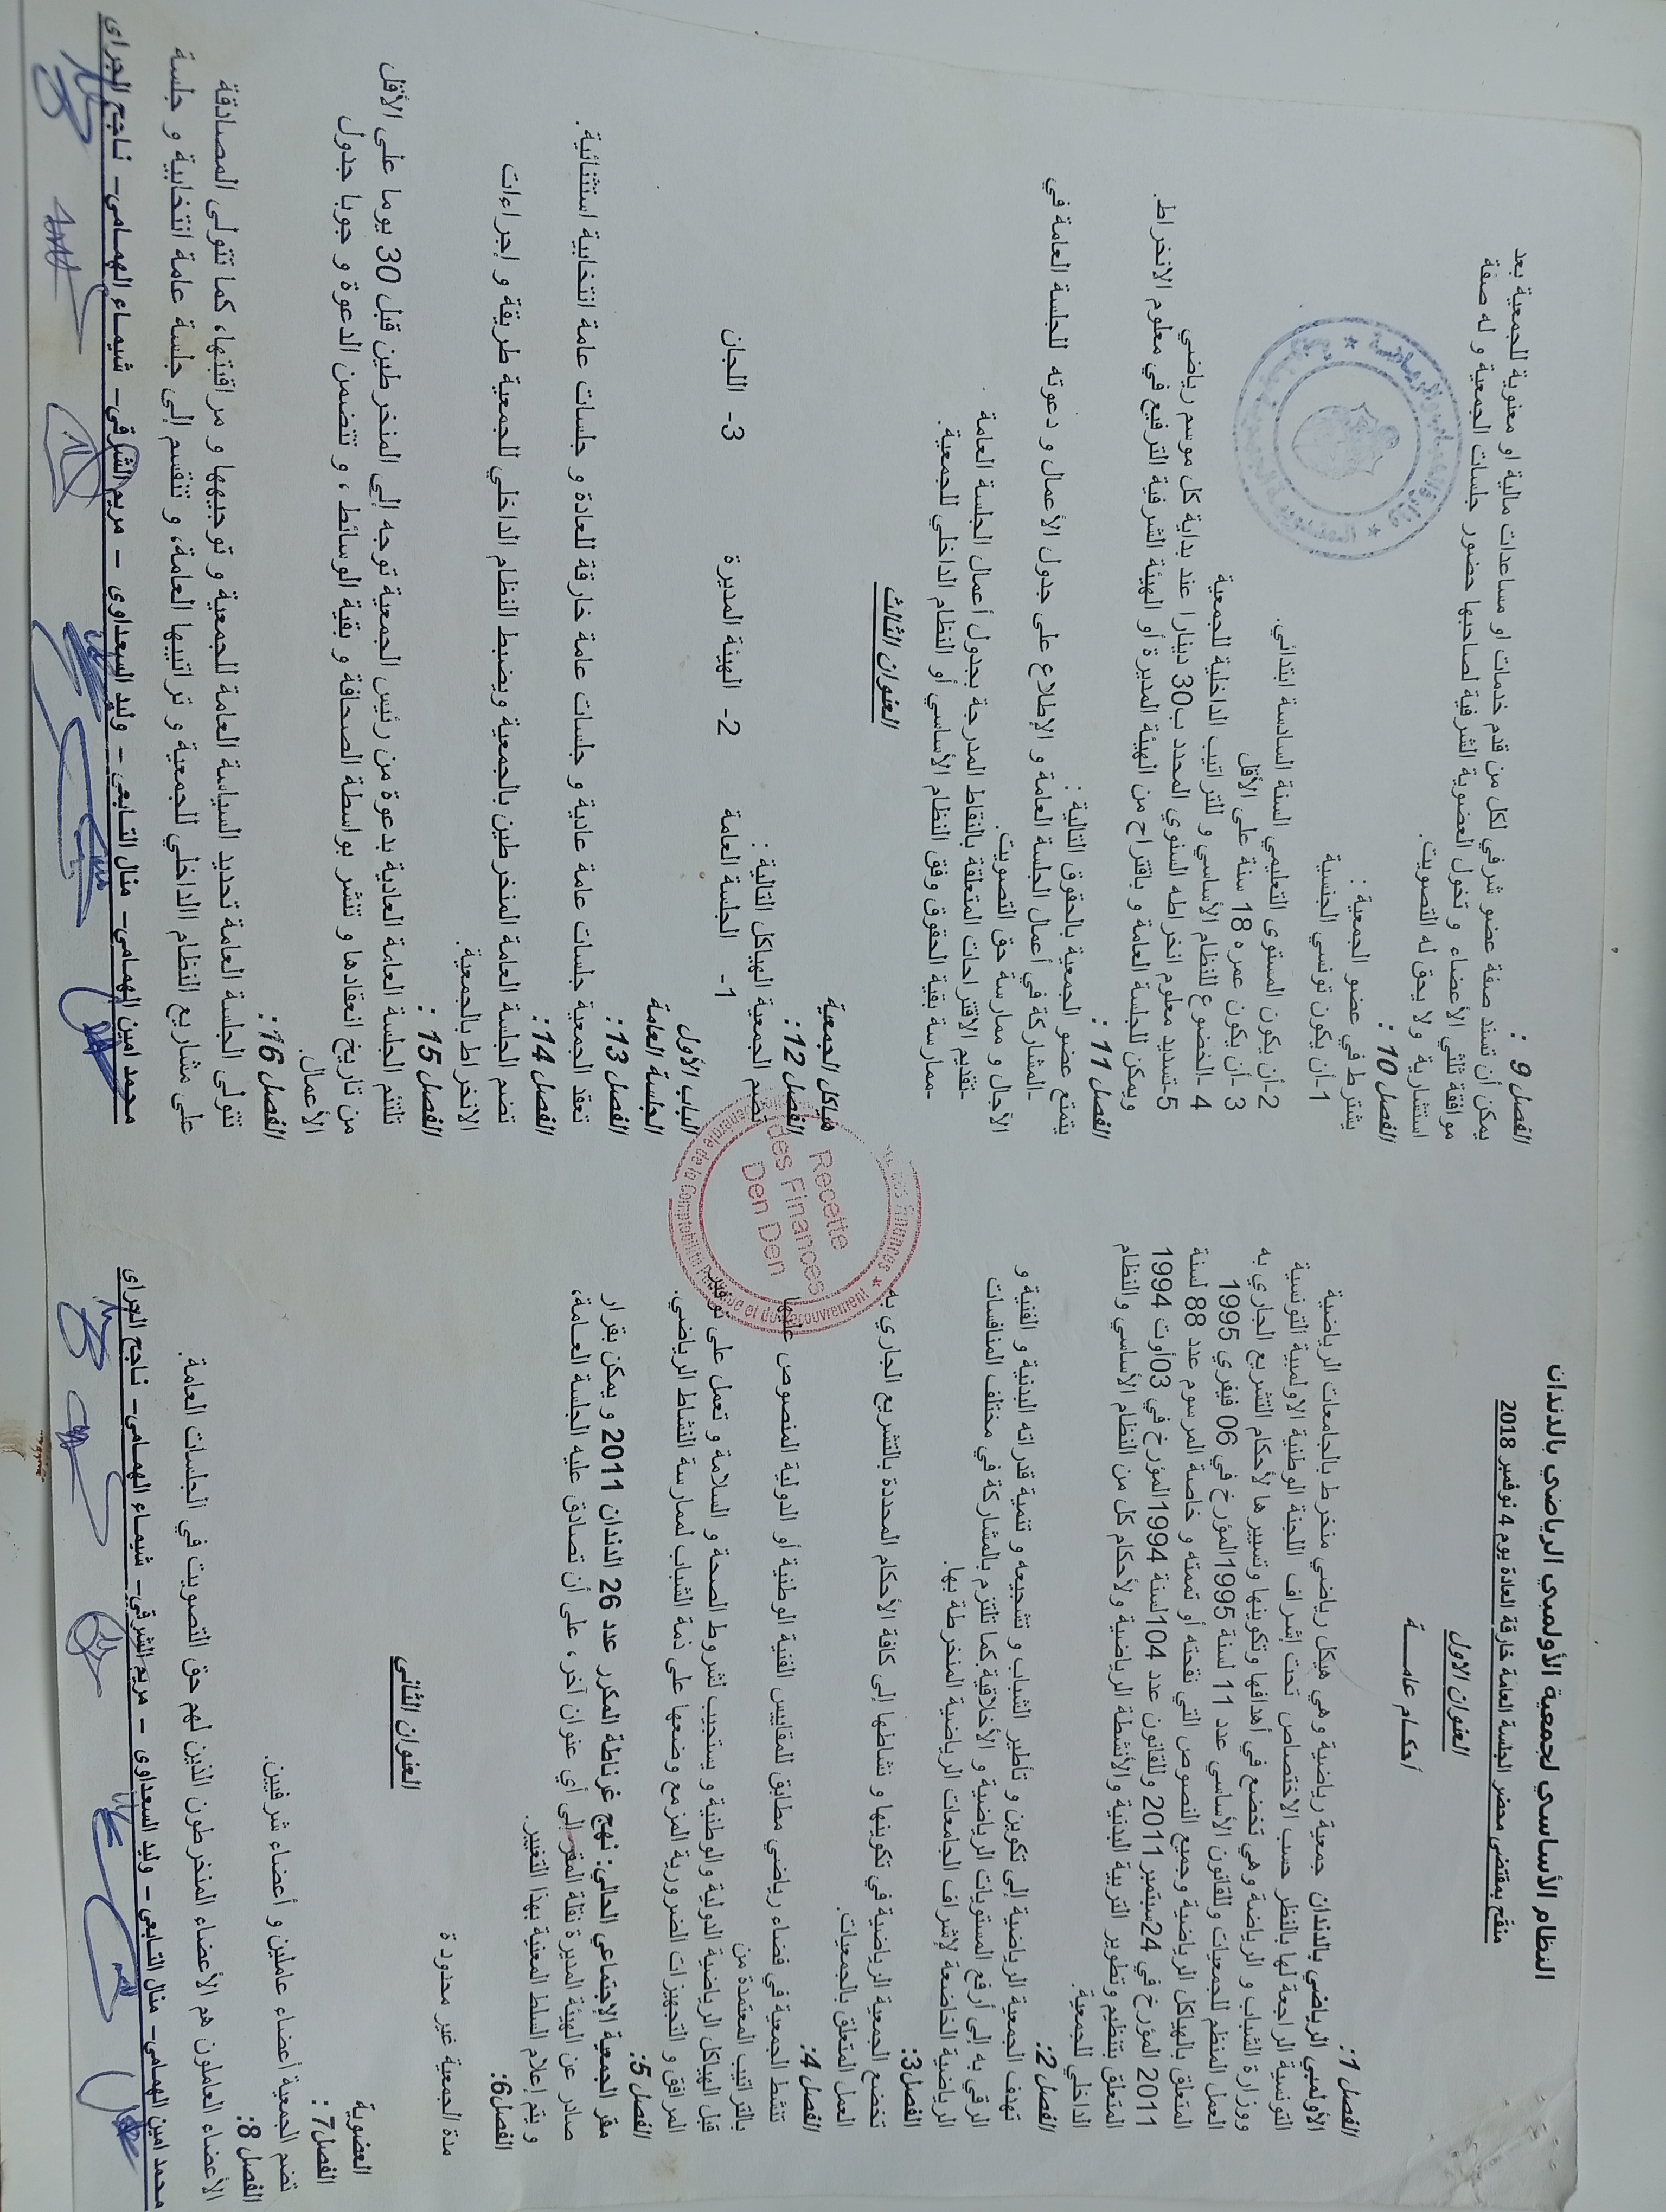 النظام الأساسي لجمعية الأولمبي الرياضي بالدندان
منقح بمقتضى محضر الجلسة العامة خارقة العادة يوم 4 نوفمبر 2018
العنوان الاول
أحكـام عامـــــة
الفصل 1:
الأولمبي الرياضي بالدندان جمعية رياضية وهي هيكل رياضي منخرط بالجامعات الرياضية
التونسية الراجعة لها بالنظر حسب الاختصاص تحت إشراف اللجنة الوطنية الاولمبية التونسية
ووزارة الشباب و الرياضة وهي تخضع في أهدافها وتكوينها وتسييرها لأحكام التشريع الجاري به
العمل المنظم للجمعيات وللقانون الأساسي عدد 11 لسنة 1995المؤرخ في 06 فيفري 1995
المتعلق بالهياكل الرياضية وجميع النصوص التي نقحته أو تممته و خاصة المرسوم عدد 88 لسنة
2011 المؤرخ في 24سبتمبر 2011 وللقانون عدد 104لسنة 1994المؤرخ في 03أوت 1994
المتعلق بتنظيم وتطوير التربية البدنية والأنشطة الرياضية ولأحكام كل من النظام الأساسي والنظام
الداخلي للجمعية.
الفصل 2:
تهدف الجمعية الرياضية إلى تكوين و تأطير الشباب و تشجيعه و تنمية قدراته البدنية و الفنية و
الرقي به إلى أرفع المستويات الرياضية و الأخلاقية كما تلتزم بالمشاركة في مختلف المنافسات
الرياضية الخاضعة لإشراف الجامعات الرياضية المنخرطة بها.
الفصل3:
تخضع الجمعية الرياضية في تكوينها و نشاطها إلى كافة الأحكام المحددة بالتشريع الجاري به
العمل المتعلق بالجمعيات.
الفصل 4:
تنشط الجمعية في فضاء رياضي مطابق للمقاييس الفنية الوطنية أو الدولية المنصوص عليها
بالتراتيب المعتمدة من
قبل الهياكل الرياضية الدولية والوطنية و يستجيب لشروط الصحة و السلامة و تعمل على توفير
المرافق و التجهيزات الضرورية المزمع وضعها على ذمة الشباب لممارسة النشاط الرياضي.
الفصل 5:
مقر الجمعية الإجتماعي الحالي: نهج غرناطة المكرر عدد 26 الدندان 2011 و يمكن بقرار
صادر عن الهيئة المديرة نقلة المقر إلى أي عنوان آخر، على أن تصادق عليه الجلسة العامة،
و يتم إعلام السلط المعنية بهذا التغيير.
الفصل6:
مدة الجمعية غير محدودة
العنوان الثاني
العضوية
الفصل7 :
تضم الجمعية أعضاء عاملين و أعضاء شرفيين.
الفصل 8:
الأعضاء العاملون هم الأعضاء المنخرطون الذين لهم حق التصويت في الجلسات العامة.
محمد امين الهمامي– منال التابعي – وليد السعداوي – مريم الشرقي– شيماء الهمامي– ناجح الجراي
الفصل 9 :
يمكن أن تسند صفة عضو شرفي لكل من قدم خدمات او مساعدات مالية او معنوية للجمعية بعد
موافقة ثلثي الأعضاء و تخول العضوية الشرفية لصاحبها حضور جلسات الجمعية و له صفة
استشارية ولا يحق له التصويت.
الفصل 10 :
يشترط في عضو الجمعية :
1-أن يكون تونسي الجنسية
2-أن يكون المستوى التعليمي السنة السادسة ابتدائي.
3 -أن يكون عمره 18 سنة على الأقل
4 -الخضوع للنظام الأساسي و للتراتيب الداخلية للجمعية
5-تسديد معلوم انخراطه السنوي المحدد ب30 دينارا عند بداية كل موسم رياضي
ويمكن للجلسة العامة و باقتراح من الهيئة المديرة أو الهيئة الشرفية الترفيع في معلوم الانخراط.
الفصل 11 :
يتمتع عضو الجمعية بالحقوق التالية :
-المشاركة في أعمال الجلسة العامة و الإطلاع على جدول الأعمال و دعوته للجلسة العامة في
الآجال و ممارسة حق التصويت.
-تقديم الاقتراحات المتعلقة بالنقاط المدرجة بجدول أعمال الجلسة العامة .
-ممارسة بقية الحقوق وفق النظام الأساسي أو النظام الداخلي للجمعية.
العنوان الثالث
هياكل الجمعية
الفصل 12 :
تضم الجمعية الهياكل التالية :
1- الجلسة العامة 2- الهيئة المديرة 3- اللجان
الباب الأول
الجلسة العامة
الفصل 13 :
تعقد الجمعية جلسات عامة عادية و جلسات عامة خارقة للعادة و جلسات عامة انتخابية استثنائية.
الفصل 14 :
تضم الجلسة العامة المنخرطين بالجمعية ويضبط النظام الداخلي للجمعية طريقة و إجراءات
الانخراط بالجمعية.
الفصل 15 :
تلتئم الجلسة العامة العادية بدعوة من رئيس الجمعية توجه إلى المنخرطين قبل 30 يوما على الأقل
من تاريخ انعقادها و تنشر بواسطة الصحافة و بقية الوسائط ، و تتضمن الدعوة و جوبا جدول
الأعمال.
الفصل 16 :
تتولى الجلسة العامة تحديد السياسة العامة للجمعية و توجيهها و مراقبتها، كما تتولى المصادقة
على مشاريع النظام االداخلي للجمعية و تراتيبها العامة، و تنقسم إلى جلسة عامة انتخابية و جلسة
محمد امين الهمامي– منال التابعي – وليد السعداوي – مريم الشرقي– شيماء الهمامي– ناجح الجراي
Recette
des Finances
Den Den